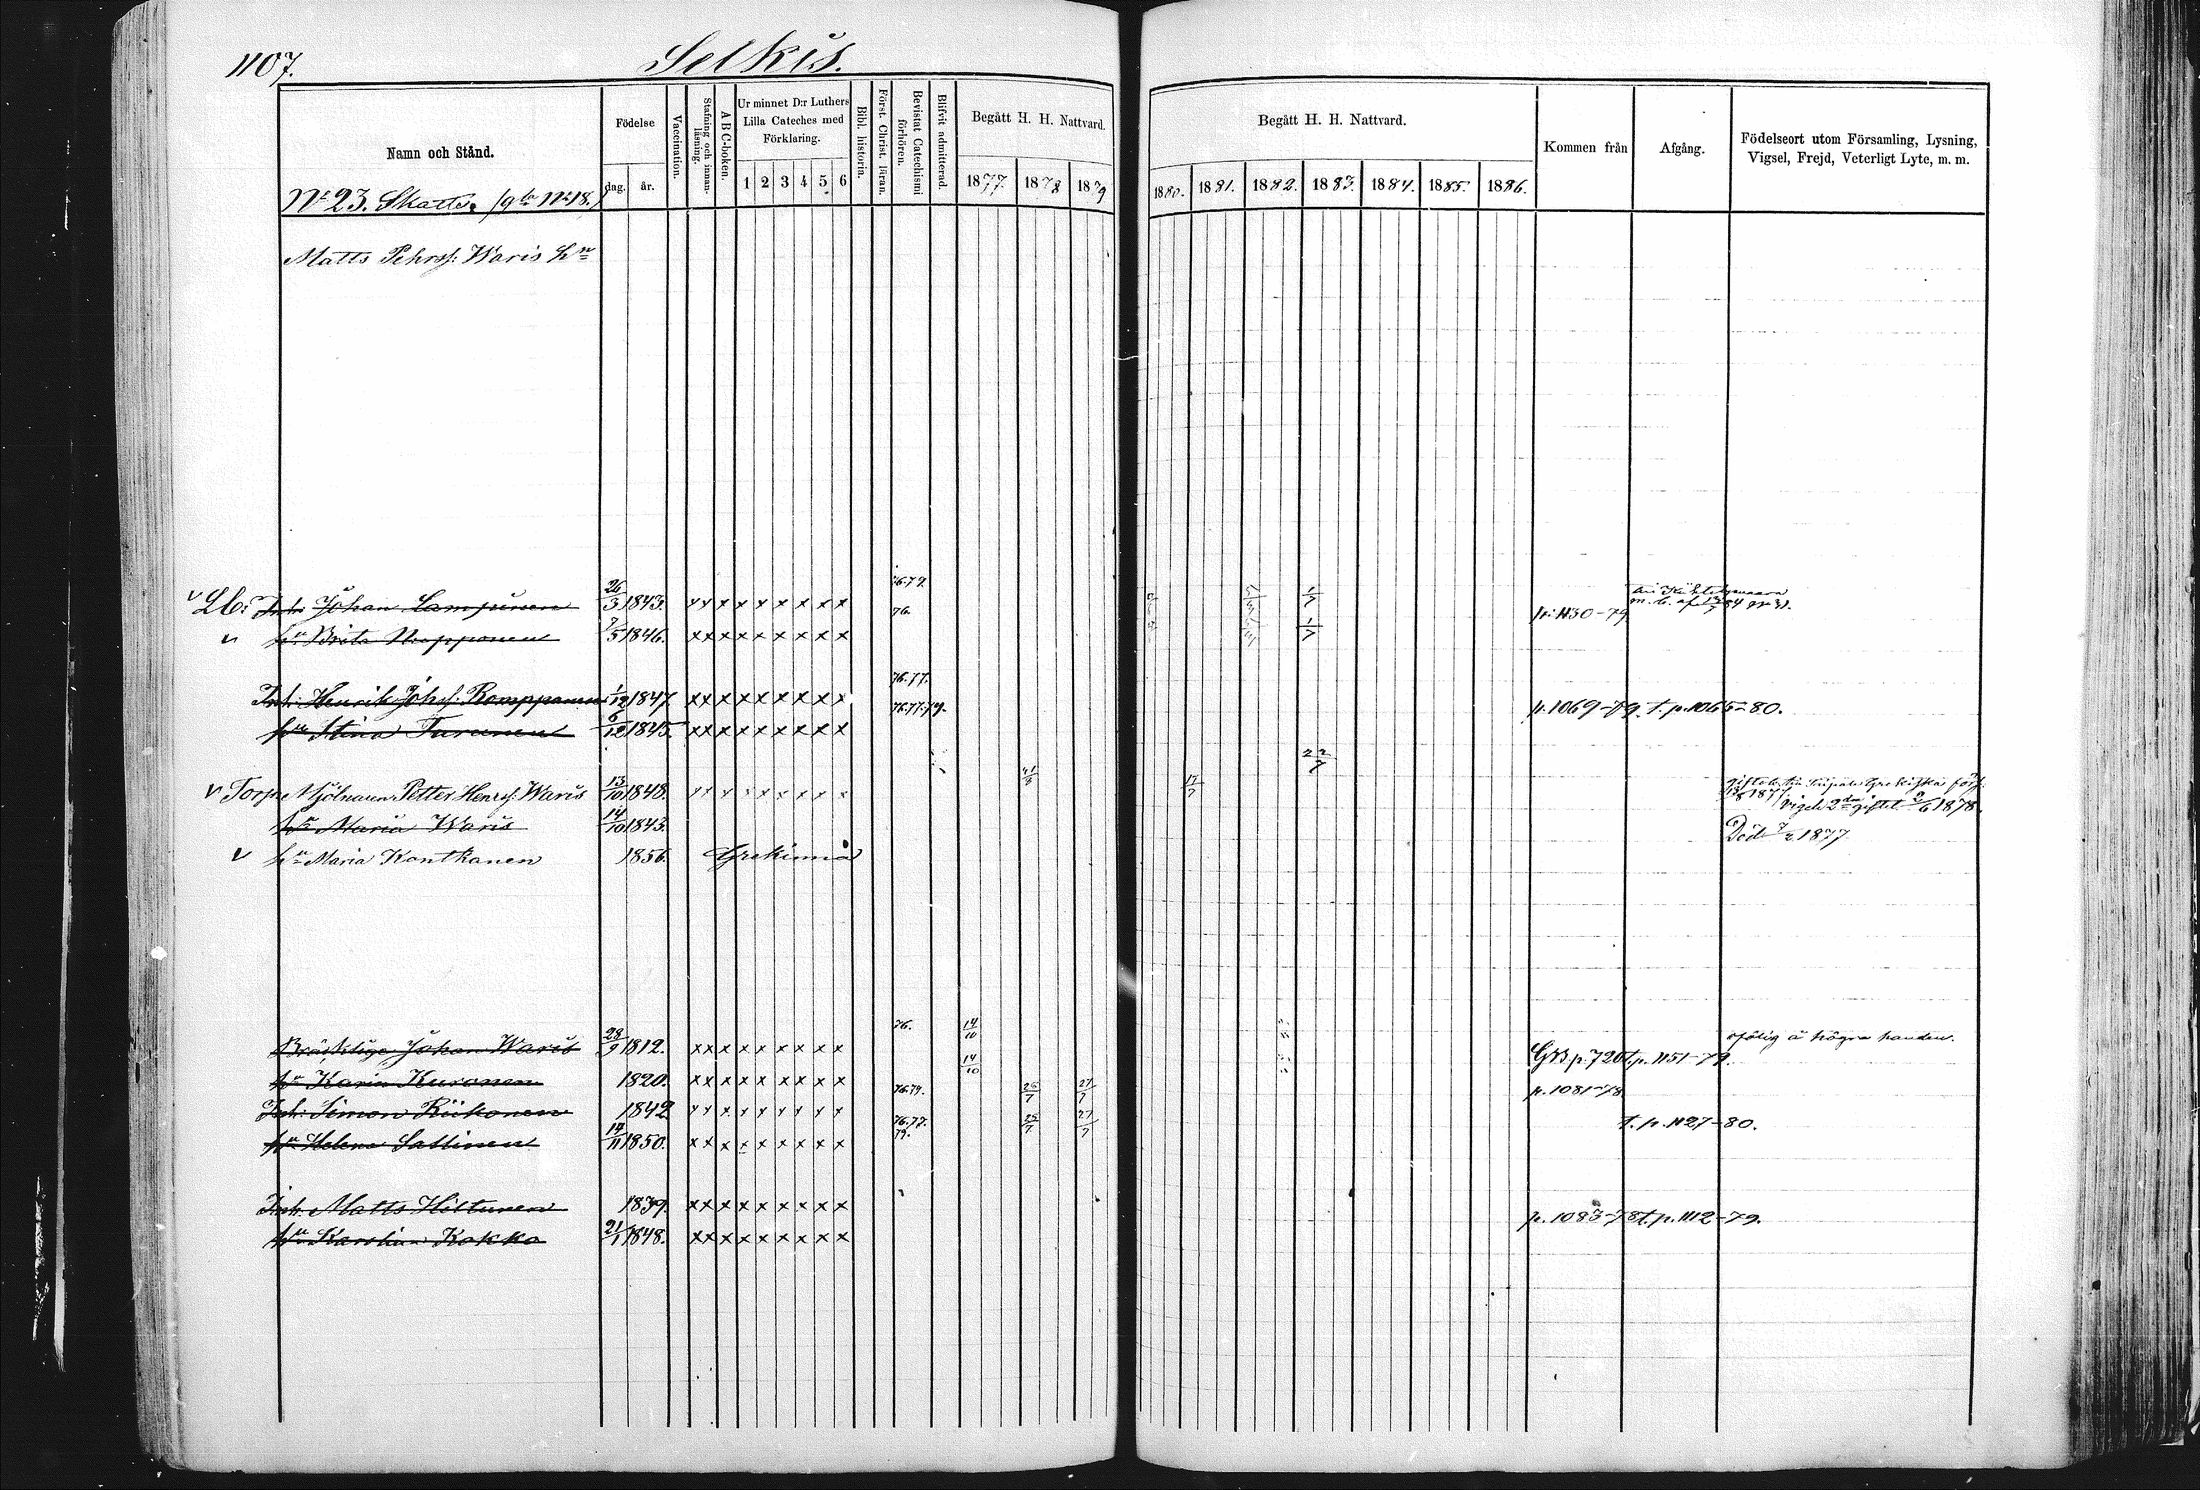 1107.
Selkis.
Namn och Stånd.
Födelse
dag.
år.
Vaccination.
Stafning och innanläsning.
ABC-boken.
Ur minnet D:r Luthers
Lilla Cateches med
Förklaring.
1 2 3 4 5 6
Bibl. historia.
Först. Christ. läran.
Bevistat Catechismi förhören.
Blifvit admitterad.
Begått H. H. Nattvard.
1877. 1878 1879
Begått H. H. Nattvard.
1880. 1881. 1882. 1883. 1884. 1885. 1886.
Kommen från
Afgång.
Födelseort utom Församling, Lysning,
Vigsel, Frejd, Veterligt Lyte, m. m.
No 23. Skatte.
Matts Pehrss: Waris hu
76.79.
v Lb: Inh: Johan Lampinen 26/3 1843. x x x x x x x x x 76. 1/7 p. 1130-79
v hu Brita 7/5 1846. x x x x x x x x x 1/7
76.77.
Inh: Henrik Johss: Romppanen 1/12 1847. x x x x x x x x x 76.77.79. p. 1069-79. t. p. 1065-80.
hu Stina Turunen 6/12 1845. x x x x x x x x x
22/7
v Torp. Mjölnaren Petter Henrss: Waris 13/10 1848. x x x x x x x x x 17/7
vigd 2dra giftet 2/6 1878.
hu Maria Waris 14/10 1843. Död 1877
v hu Maria Kontkanen 1856. Grekinna
76. 14/10
Johan Waris 28/9 1812. x x x x x x x x x ofölig å högra handen.
14/10 GB. p. 720 t. p. 1151-79.
hu Karin Kuronen 1820. x x x x x x x x x
76.79. 25/7 27/7 p. 1081-78
Inh: Simon Riikonen 1842 x x x x x x x x x
76.77. 79. 25/7 27/7 t. p. 1127-80.
hu Helena Sallinen 14/11 1850. x x x x x x x x x
Inh. Matts Hiltunen 1839. x x x x x x x x x
p. 1083-78 t. p. 1112-79.
hu Karolina Kokko 21/1 1848. x x x x x x x x x